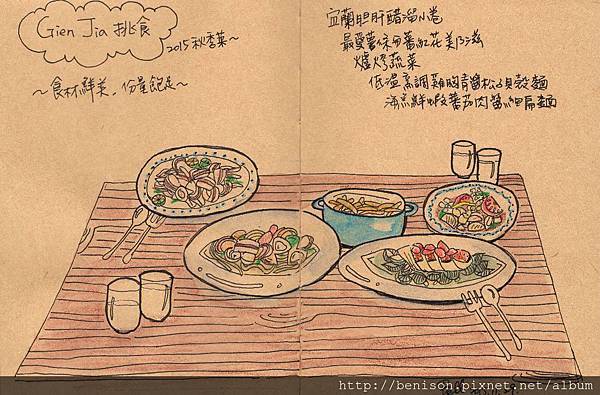 Gien Jia 挑食
2015 秋季菜～
～食材鮮美、份量飽足～
宜蘭胆肝醋溜小卷
最愛薯條用蕃紅花美乃滋
爐烤蔬菜
低溫烹調雞胸青醬松子貝殼麵
海鮮鮮蝦蕃茄肉醬細扁麵
http://benison.pixnet.net/album